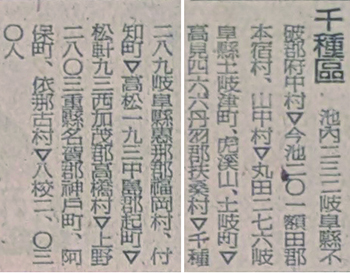 千種區
池內二三二岐阜縣不
破郡府中村▼今池二〇一額田郡
本宿村、山中村▼丸田二七六岐
阜縣土岐津町、虎溪山、土岐町▼
高見四六六丹羽郡扶桑村▼千種
二八九岐阜縣惠那郡福岡村、付
知町▼高松一九三中島郡起町▼
松軒九三西加茂郡高橋村▼上野
二八〇三重縣名賀郡神戶町、阿
保町、依那古村▼八校二、〇三
〇人